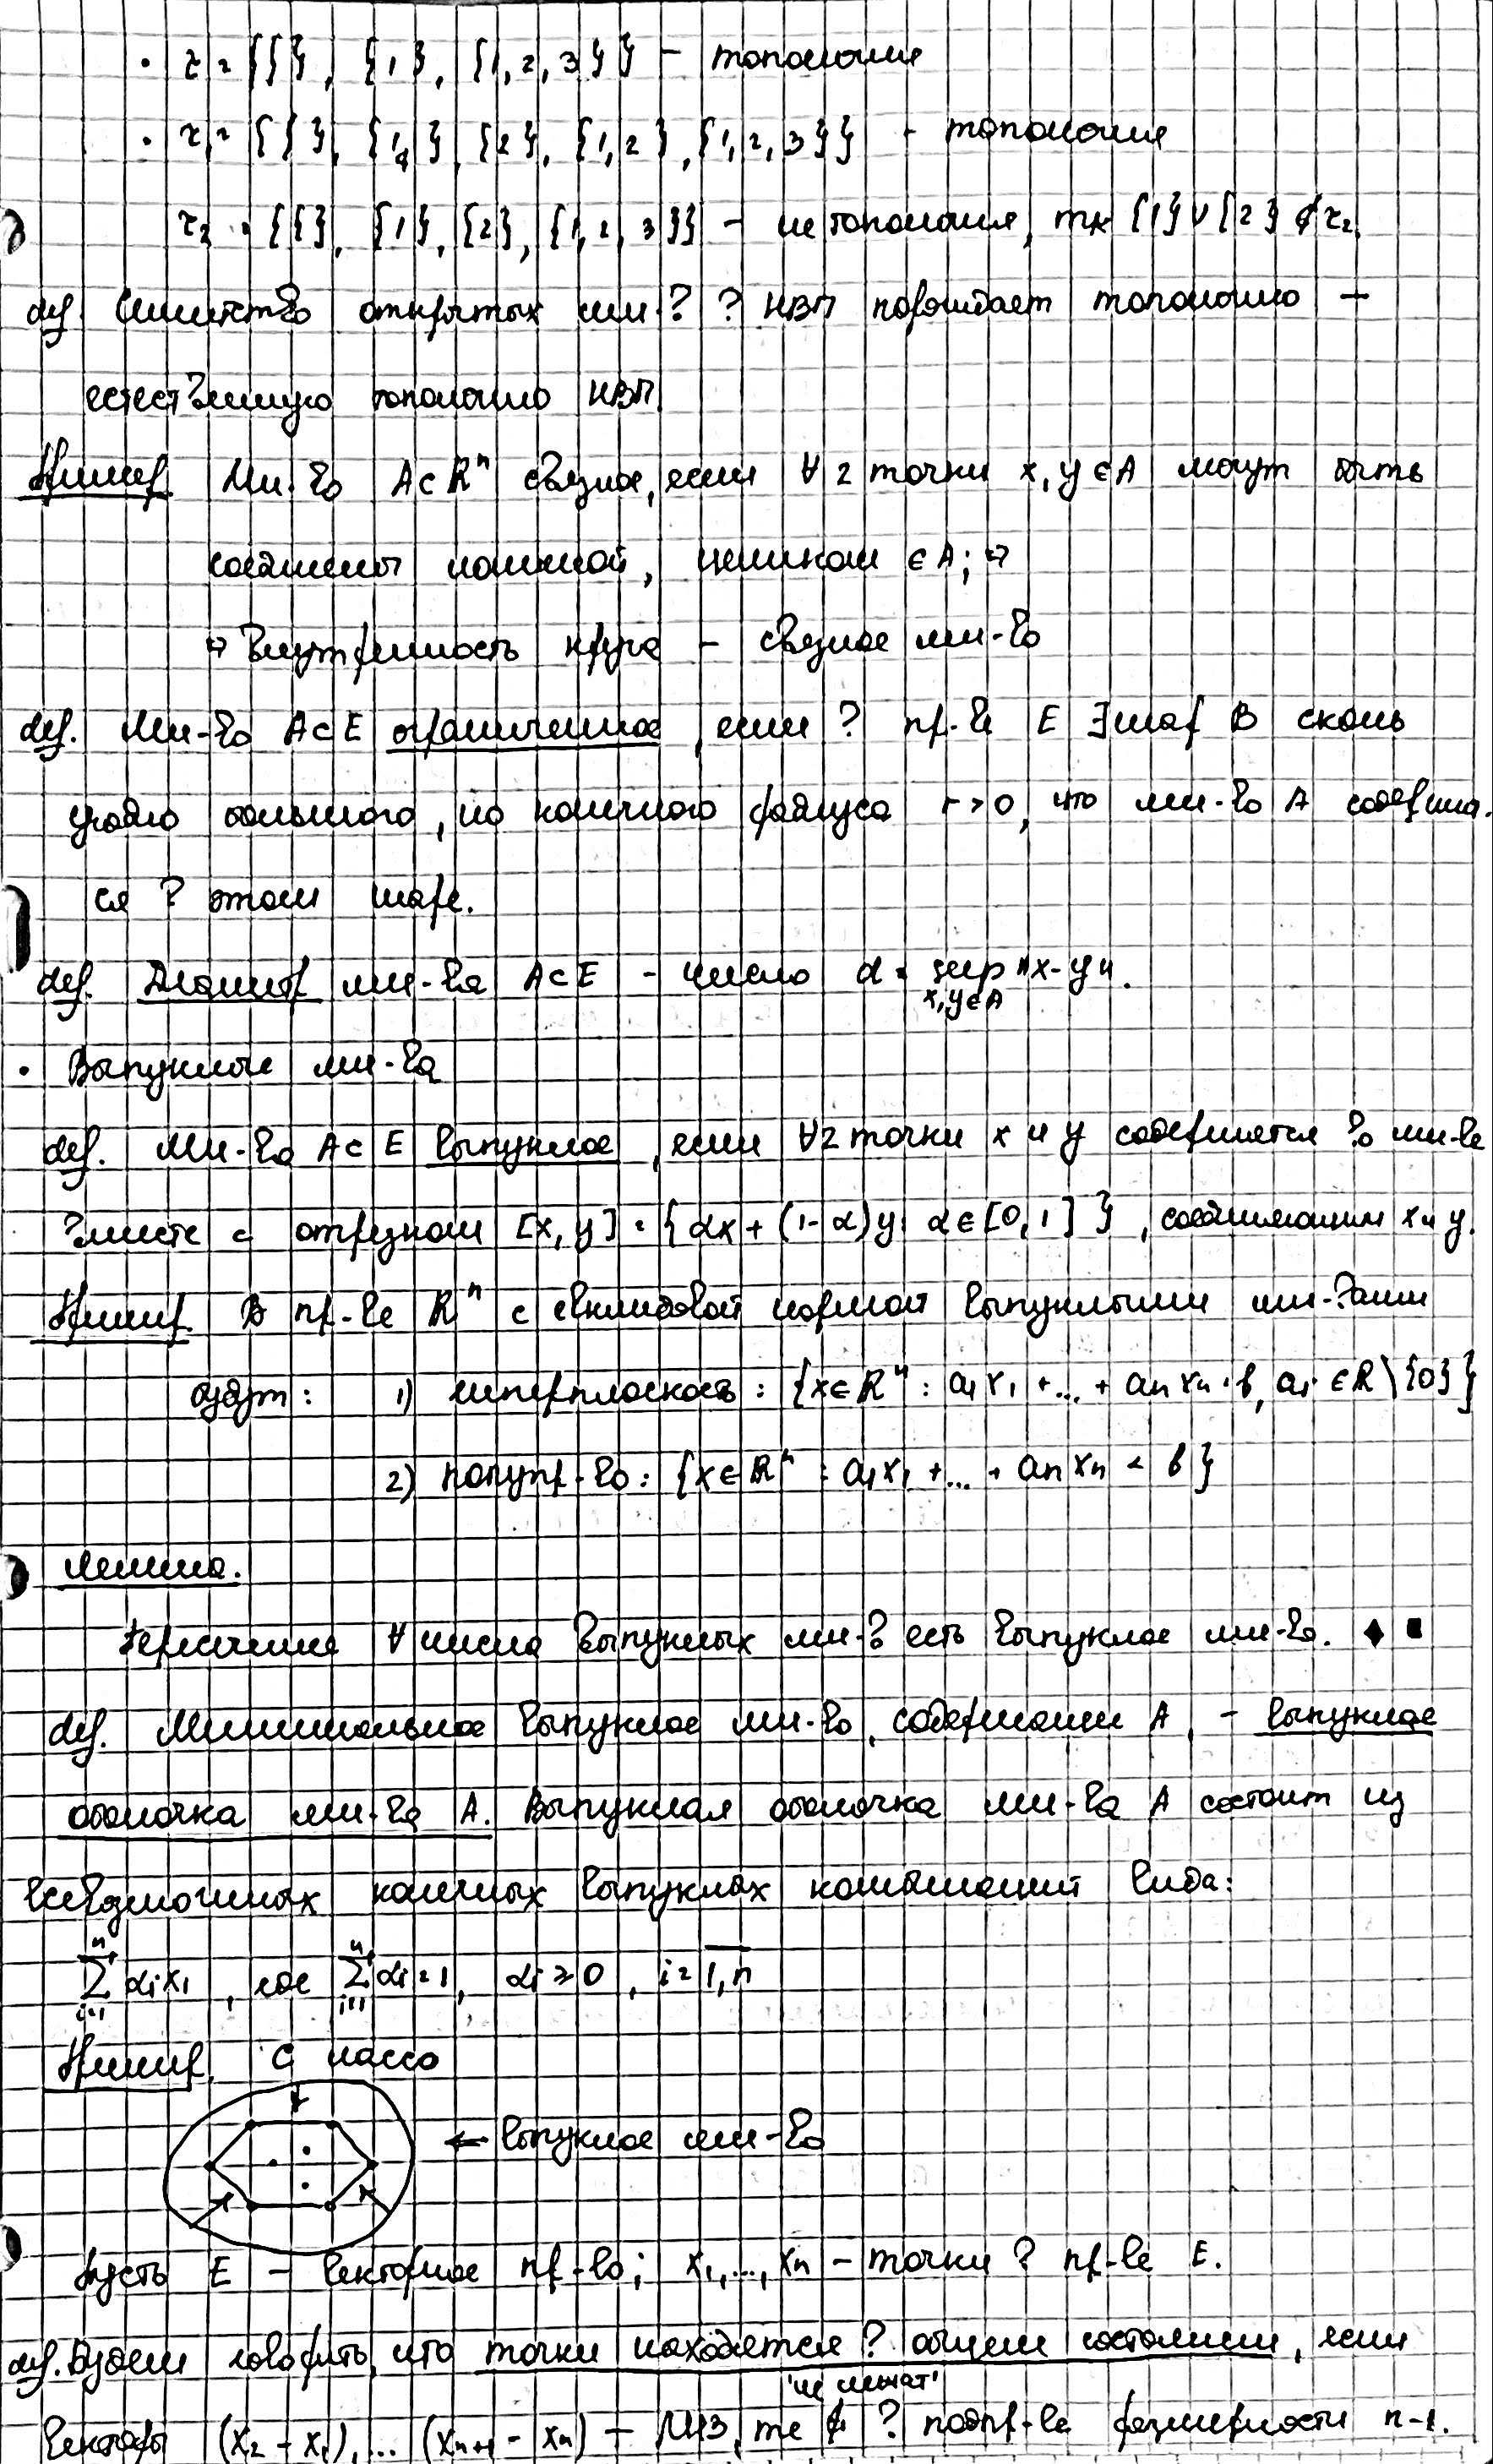 · τ = {{}, {1}, {1, 2, 3}} – топология
· τ = {{}, {1}, {2}, {1, 2}, {1, 2, 3}} – топология
τ₂ = {{}, {1}, {2}, {1, 2, 3}} – не топология, тк {1} ∪ {2} ∉ τ₂
def. Семейство открытых мн-в в НВП порождает топологию –
естественную топологию НВП.
Пример. Мн-во A⊂Rⁿ связное, если ∀ 2 точки x, y ∈ A могут быть
соединены ломаной, целиком ∈ A; ⇒
⇒ Внутренность круга – связное мн-во
def. Мн-во A⊂E ограниченное, если в пр-ве E ∃ шар B сколь
угодно большого, но конечного радиуса r > 0, что мн-во A содержит-
ся в этом шаре.
def. Диаметр мн-ва A⊂E – число d = sup ‖x - y‖.
x, y ∈ A
· Выпуклые мн-ва
def. Мн-во A⊂E выпуклое, если ∀ 2 точки x и y содержатся во мн-ве
вместе с отрезком [x, y] = {αx + (1-α)y: α∈[0, 1]}, соединяющим x и y.
Пример. В пр-ве Rⁿ с евклидовой нормой выпуклыми мн-вами
будут: 1) гиперплоскость: {x∈Rⁿ : a₁x₁ + ... + aₙxₙ = b, aᵢ ∈ R \ {0}}
2) полупр-во: {x∈Rⁿ : a₁x₁ + ... + aₙxₙ < b}
Лемма.
Пересечение ∀ числа выпуклых мн-в есть выпуклое мн-во. ♦ ■
def. Минимальное выпуклое мн-во, содержащее A, – выпуклая
оболочка мн-ва A. Выпуклая оболочка мн-ва A состоит из
всевозможных конечных выпуклых комбинаций вида:
∑ᵢ₌₁ⁿ αᵢxᵢ, где ∑ᵢ₌₁ⁿ αᵢ = 1, αᵢ ≥ 0, i = 1,n
Пример. С лассо
← выпуклое мн-во
Пусть E – векторное пр-во; x₁, ..., xₙ – точки в пр-ве E.
def. Будем говорить, что точки находятся в общем состоянии, если
"не лежат"
векторы (x₂ - x₁), ... (xₙ₊₁ - xₙ) – ЛНЗ, те ∉ в подпр-ве размерности n-1.